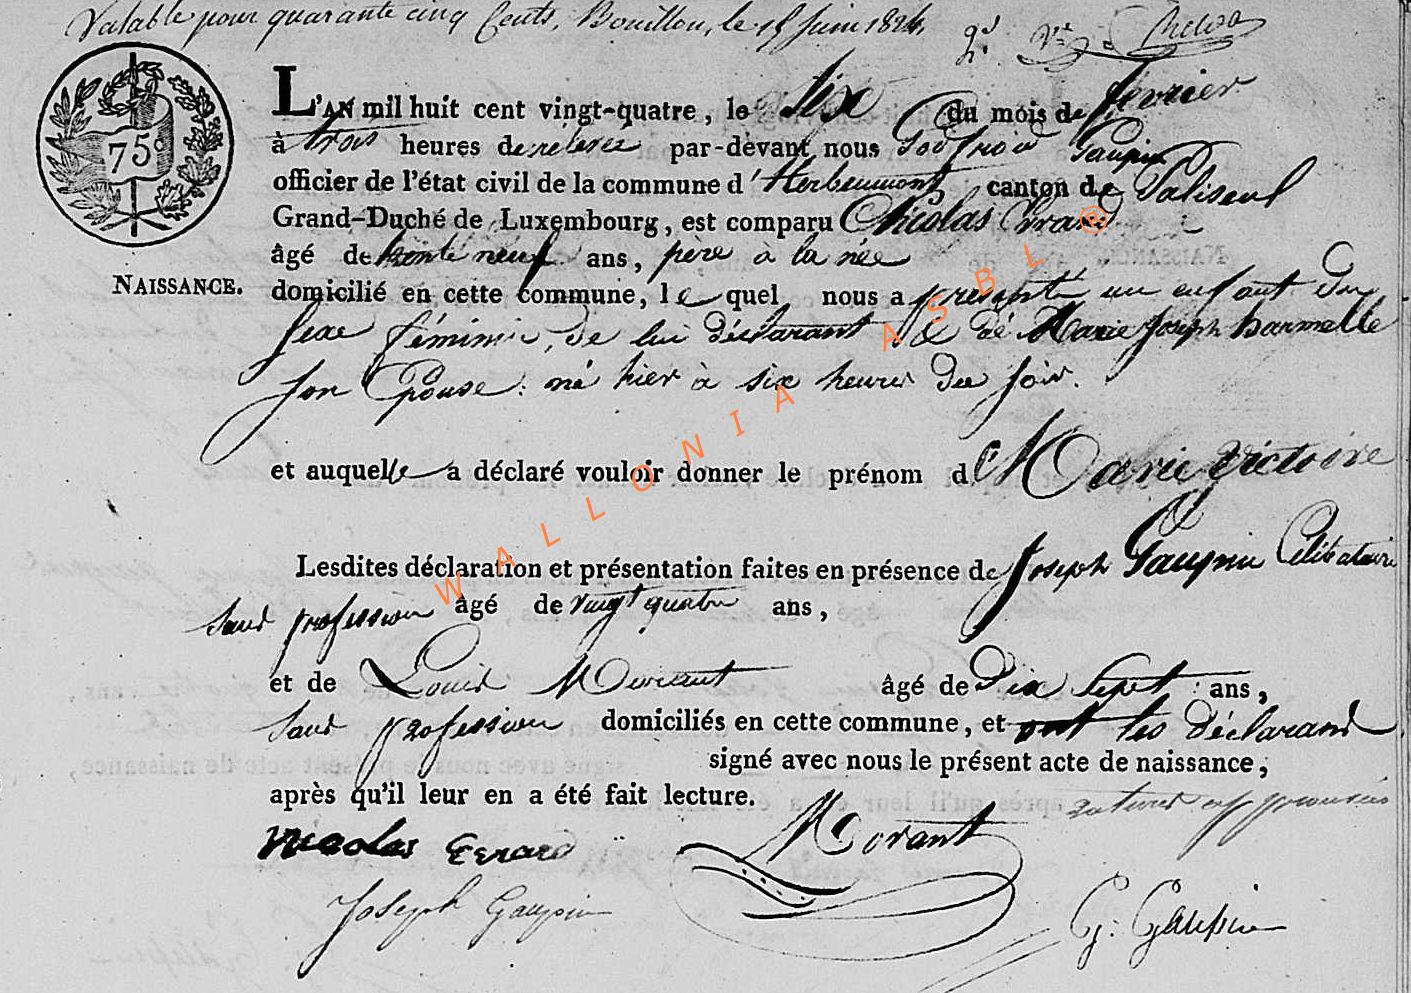 Valable pour quarante cinq Cents, Bouillon, le 15 Juin 1824.
L'AN mil huit cent vingt-quatre, le six du mois de février
à trois heures de relevée par-devant nous Godfroid Gaupin
officier de l'état civil de la commune d'Herbeumont canton de Paliseul
Grand-Duché de Luxembourg, est comparu Nicolas Girard
âgé de trente neuf ans, père à la née
NAISSANCE.
domicilié en cette commune, le quel nous a présenté un enfant du
sexe féminin, de lui déclarant & de Marie Joseph Darmelle
son Epouse: né hier à six heures du soir.
et auquelle a déclaré vouloir donner le prénom de Marie Victoire
Lesdites déclaration et présentation faites en présence de Joseph Gaupin Célibataire
sans profession âgé de vingt quatre ans,
et de Louis Morant âgé de Dix sept ans,
sans profession domiciliés en cette commune, et ont les déclarans
signé avec nous le présent acte de naissance,
après qu'il leur en a été fait lecture.
ratures approuvées
Nicolas Gerard Morant
Joseph Gaupin G. Gaupin
75c
WALLONIA ASBL ®